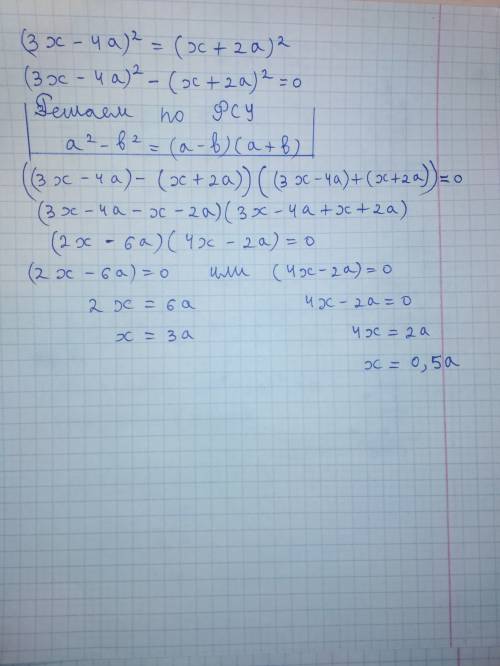 (3x - 4a)² = (x + 2a)²
(3x - 4a)² - (x + 2a)² = 0
Решаем по ФСУ
a² - b² = (a - b)(a + b)
((3x - 4a) - (x + 2a))((3x - 4a) + (x + 2a)) = 0
(3x - 4a - x - 2a)(3x - 4a + x + 2a)
(2x - 6a)(4x - 2a) = 0
(2x - 6a) = 0 или (4x - 2a) = 0
2x = 6a 4x - 2a = 0
x = 3a 4x = 2a
x = 0,5a